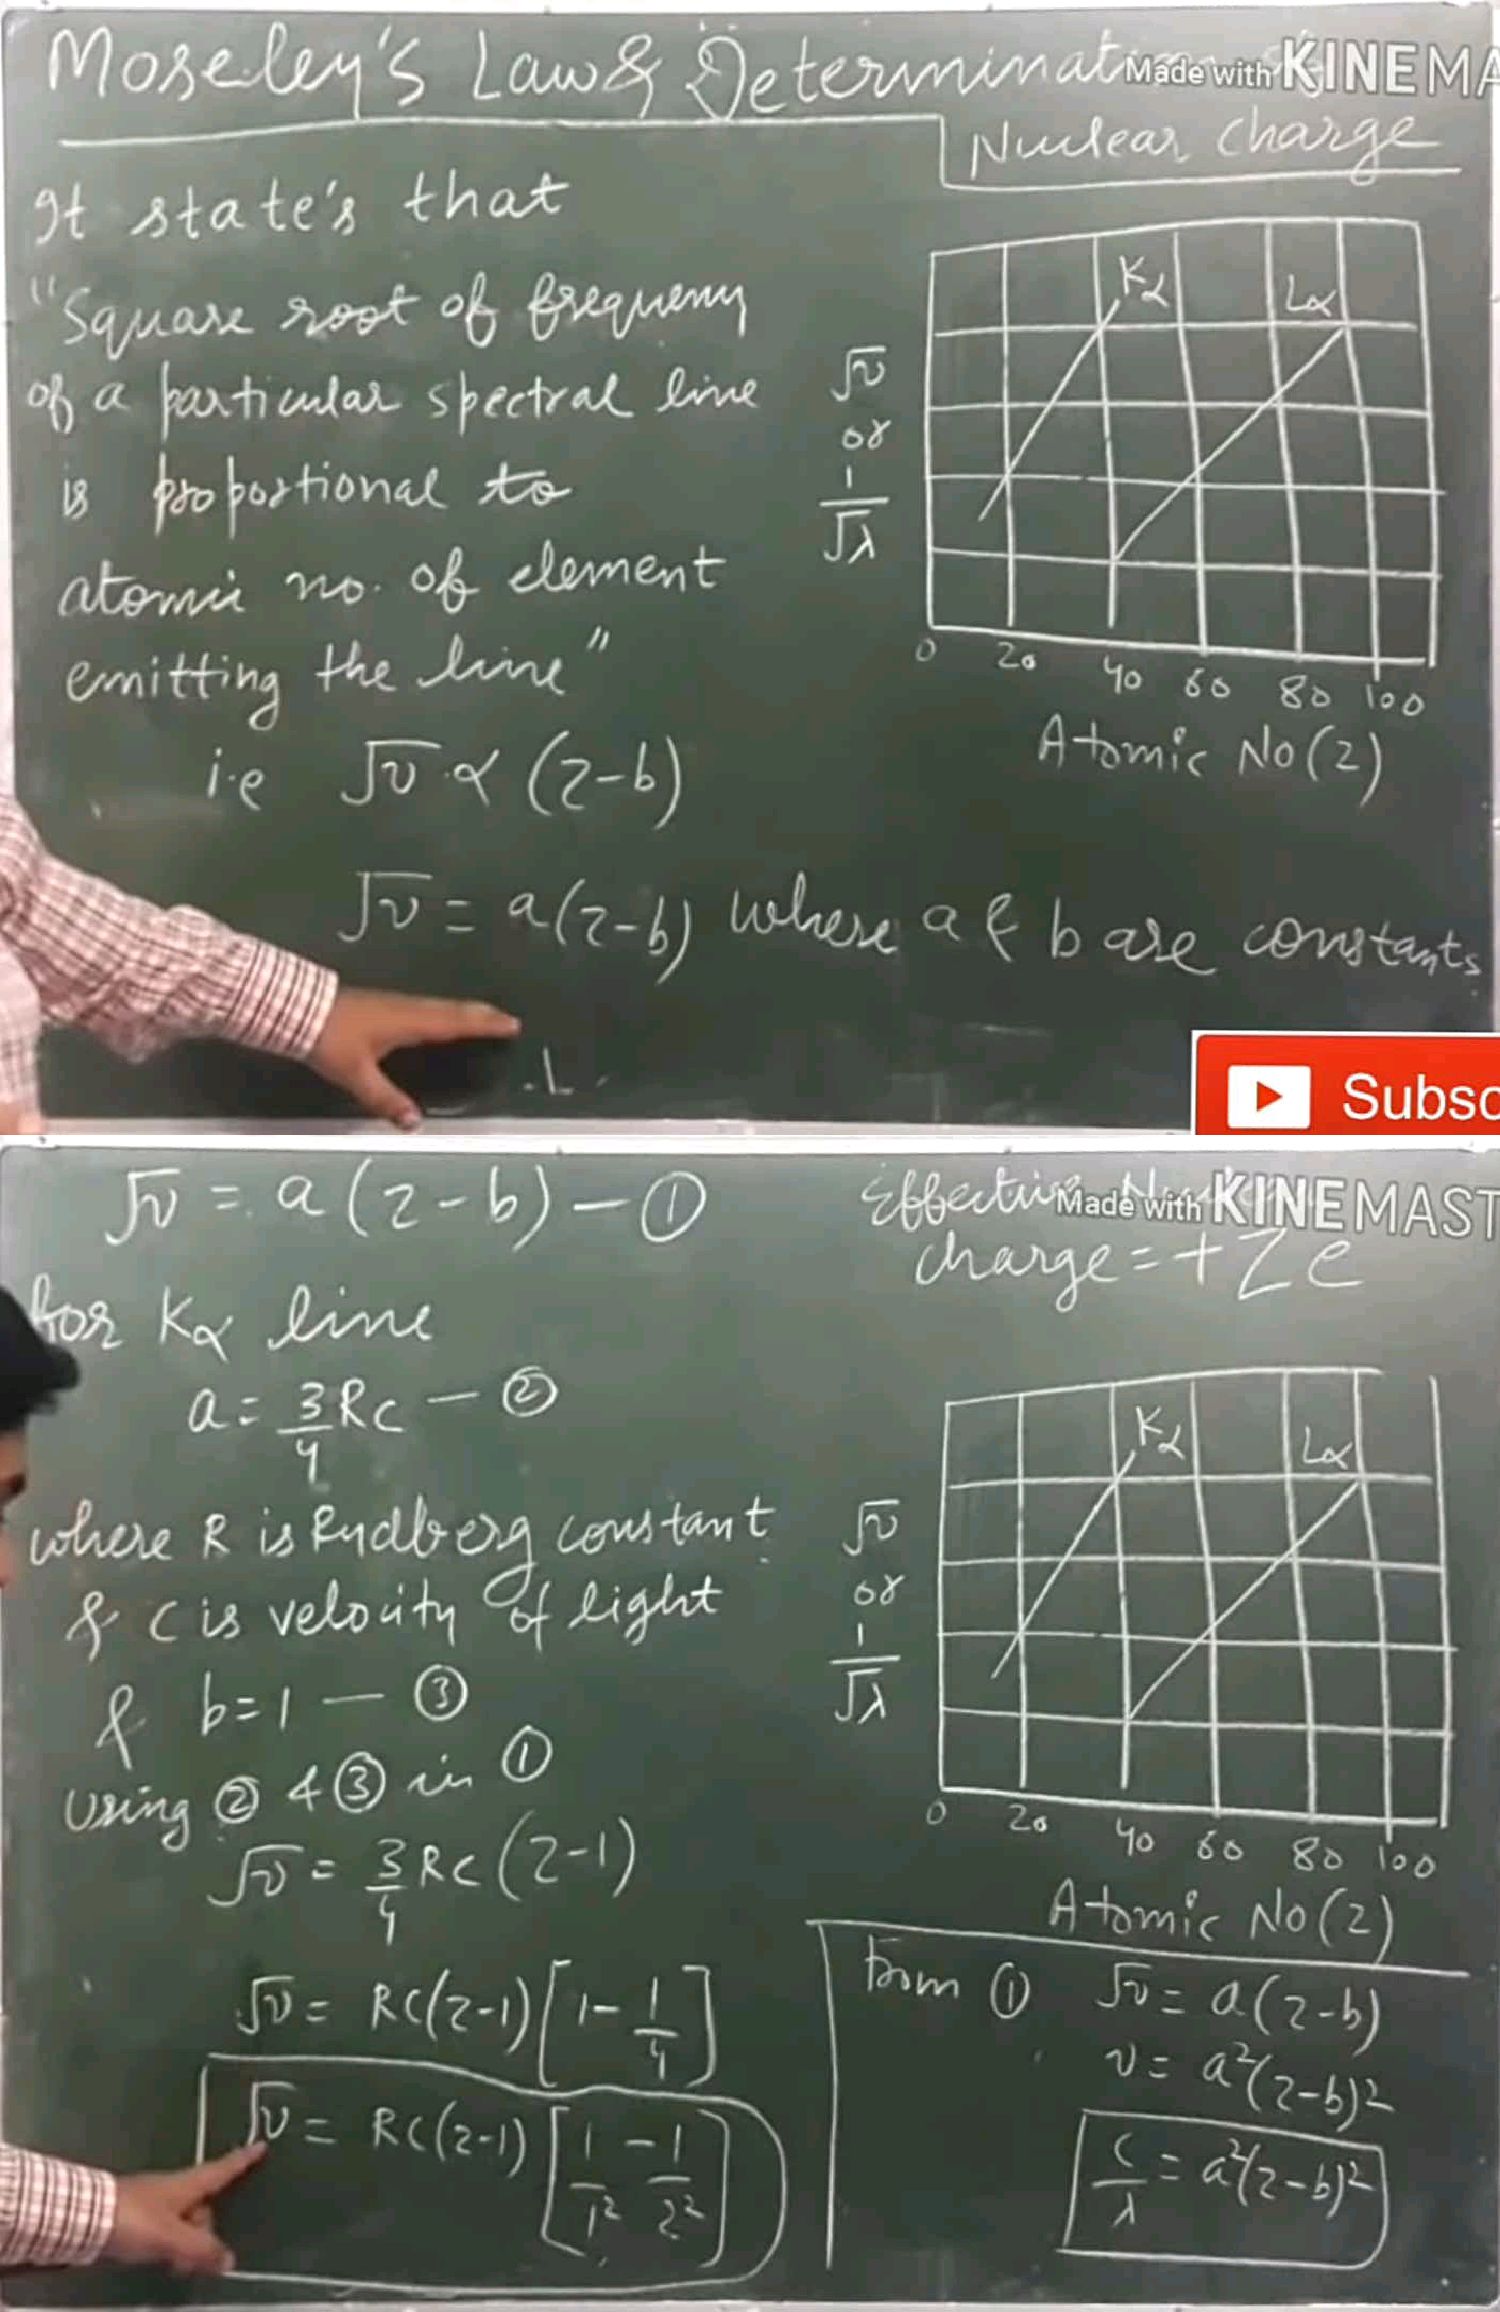 Moseley's Law & Determination
Made with KINEMA
Nuclear Charge
It state's that
"Square root of frequency
of a particular spectral line
is proportional to
atomic no. of element
emitting the line"
i.e √ν ∝ (z-b)
√ν = a(z-b) where a & b are constants
Kα
Lα
√ν
or
1/√λ
0 20 40 60 80 100
Atomic No (z)
Subsc
√ν = a(z-b) - ①
Effective
Made with KINEMAST
charge = +Ze
for Kα line
a = 3/4 Rc - ②
where R is Rydberg constant
& c is velocity of light
& b=1 - ③
Using ② & ③ in ①
√ν = 3/4 Rc (z-1)
√ν = Rc(z-1) [1 - 1/4]
√ν = Rc(z-1) [1/1² - 1/2²]
Kα
Lα
√ν
or
1/√λ
0 20 40 60 80 100
Atomic No (z)
from ① √ν = a(z-b)
ν = a²(z-b)²
c/λ = a²(z-b)²